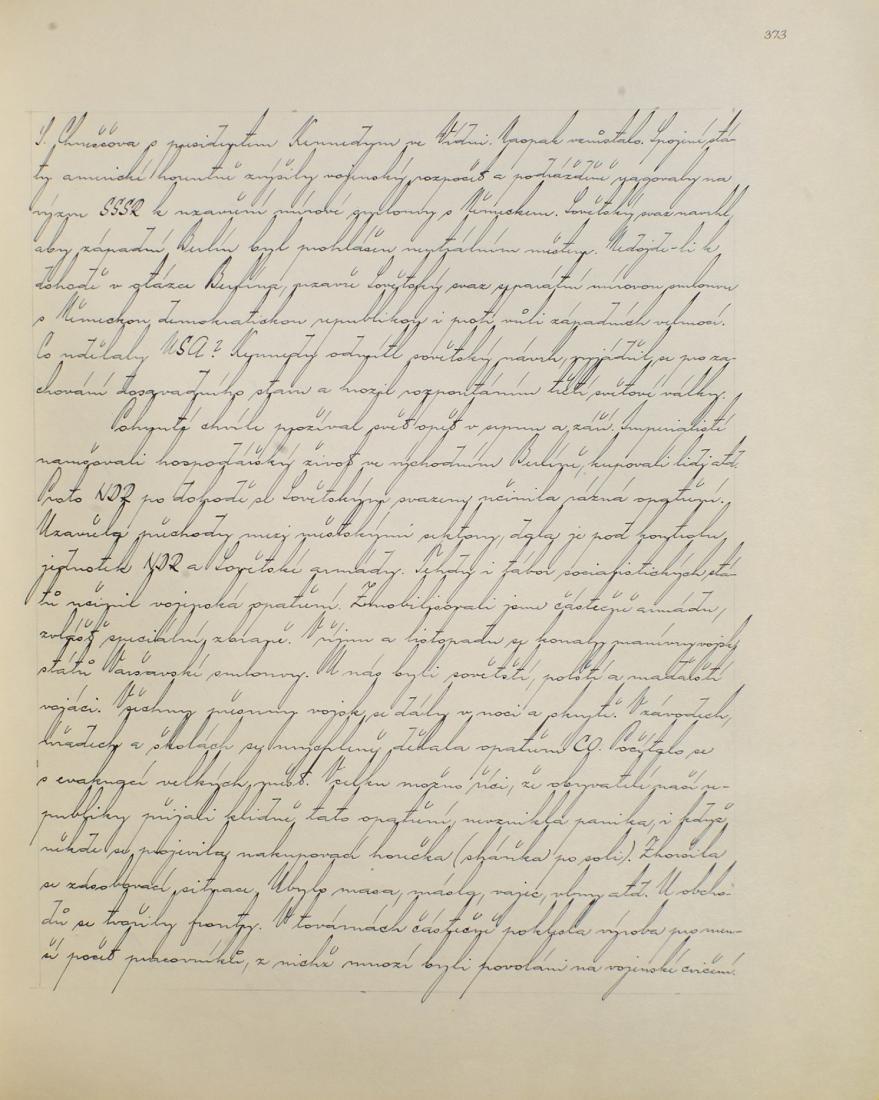 373
S. Chruščova s presidentem Kennedym ve Vídni. Naopak vzrůstalo. Spojené stá-
ty americké horečně zvýšily vojenský rozpočet a podrážděně reagovaly na
výzvu SSSR k uzavření mírové smlouvy s Německem. Sovětský svaz navrhl,
aby západní Berlín byl prohlášen neutrálním městem. Nedojde-li k
dohodě v otázce Berlína, uzavře Sovětský svaz separátní mírovou smlouvu
s Německou demokratickou republikou i proti vůli západních velmocí.
Co udělaly USA? Kennedy odmítl sovětský návrh, vyjádřil se pro za-
chování dosavadního stavu a hrozil rozpoutáním třetí světové války.
chvíle prožíval svět opět v srpnu a září. Imperialisté
narušovali hospodářský život ve východním Berlíně, kupovali lidi atd.
Proto NDR po dohodě se Sovětským svazem učinila rázná opatření.
Uzavřela přechody mezi městskými sektory, dala je pod kontrolu
jednotek NDR a Sovětské armády. Tehdy i tábor socialistických stá-
tů učinil vojenská opatření. Zmobilisovali jsme částečně armádu,
zvlášť speciální zbraně. V říjnu a listopadu se konaly manévry vojsk
států Varšavské smlouvy. U nás byli sovětští, polští a maďarští
vojáci. Všechny přesuny vojsk se dály v noci a skrytě. V závodech,
úřadech a školách se urychleně dělala opatření CO. Počítalo se
s evakuací velkých měst. Vcelku možno říci, že obyvatelé naší re-
publiky přijali klidně tato opatření, nevznikla panika, i když
někde se projevila nakupovací horečka (sháňka po soli). Zhoršila
se zásobovací situace. Ubylo masa, másla, vajec, vlny atd. U obcho-
dů se tvořily fronty. V továrnách částečně poklesla výroba pro men-
ší počet pracovníků, z nichž mnozí byli povoláni na vojenské cvičení.